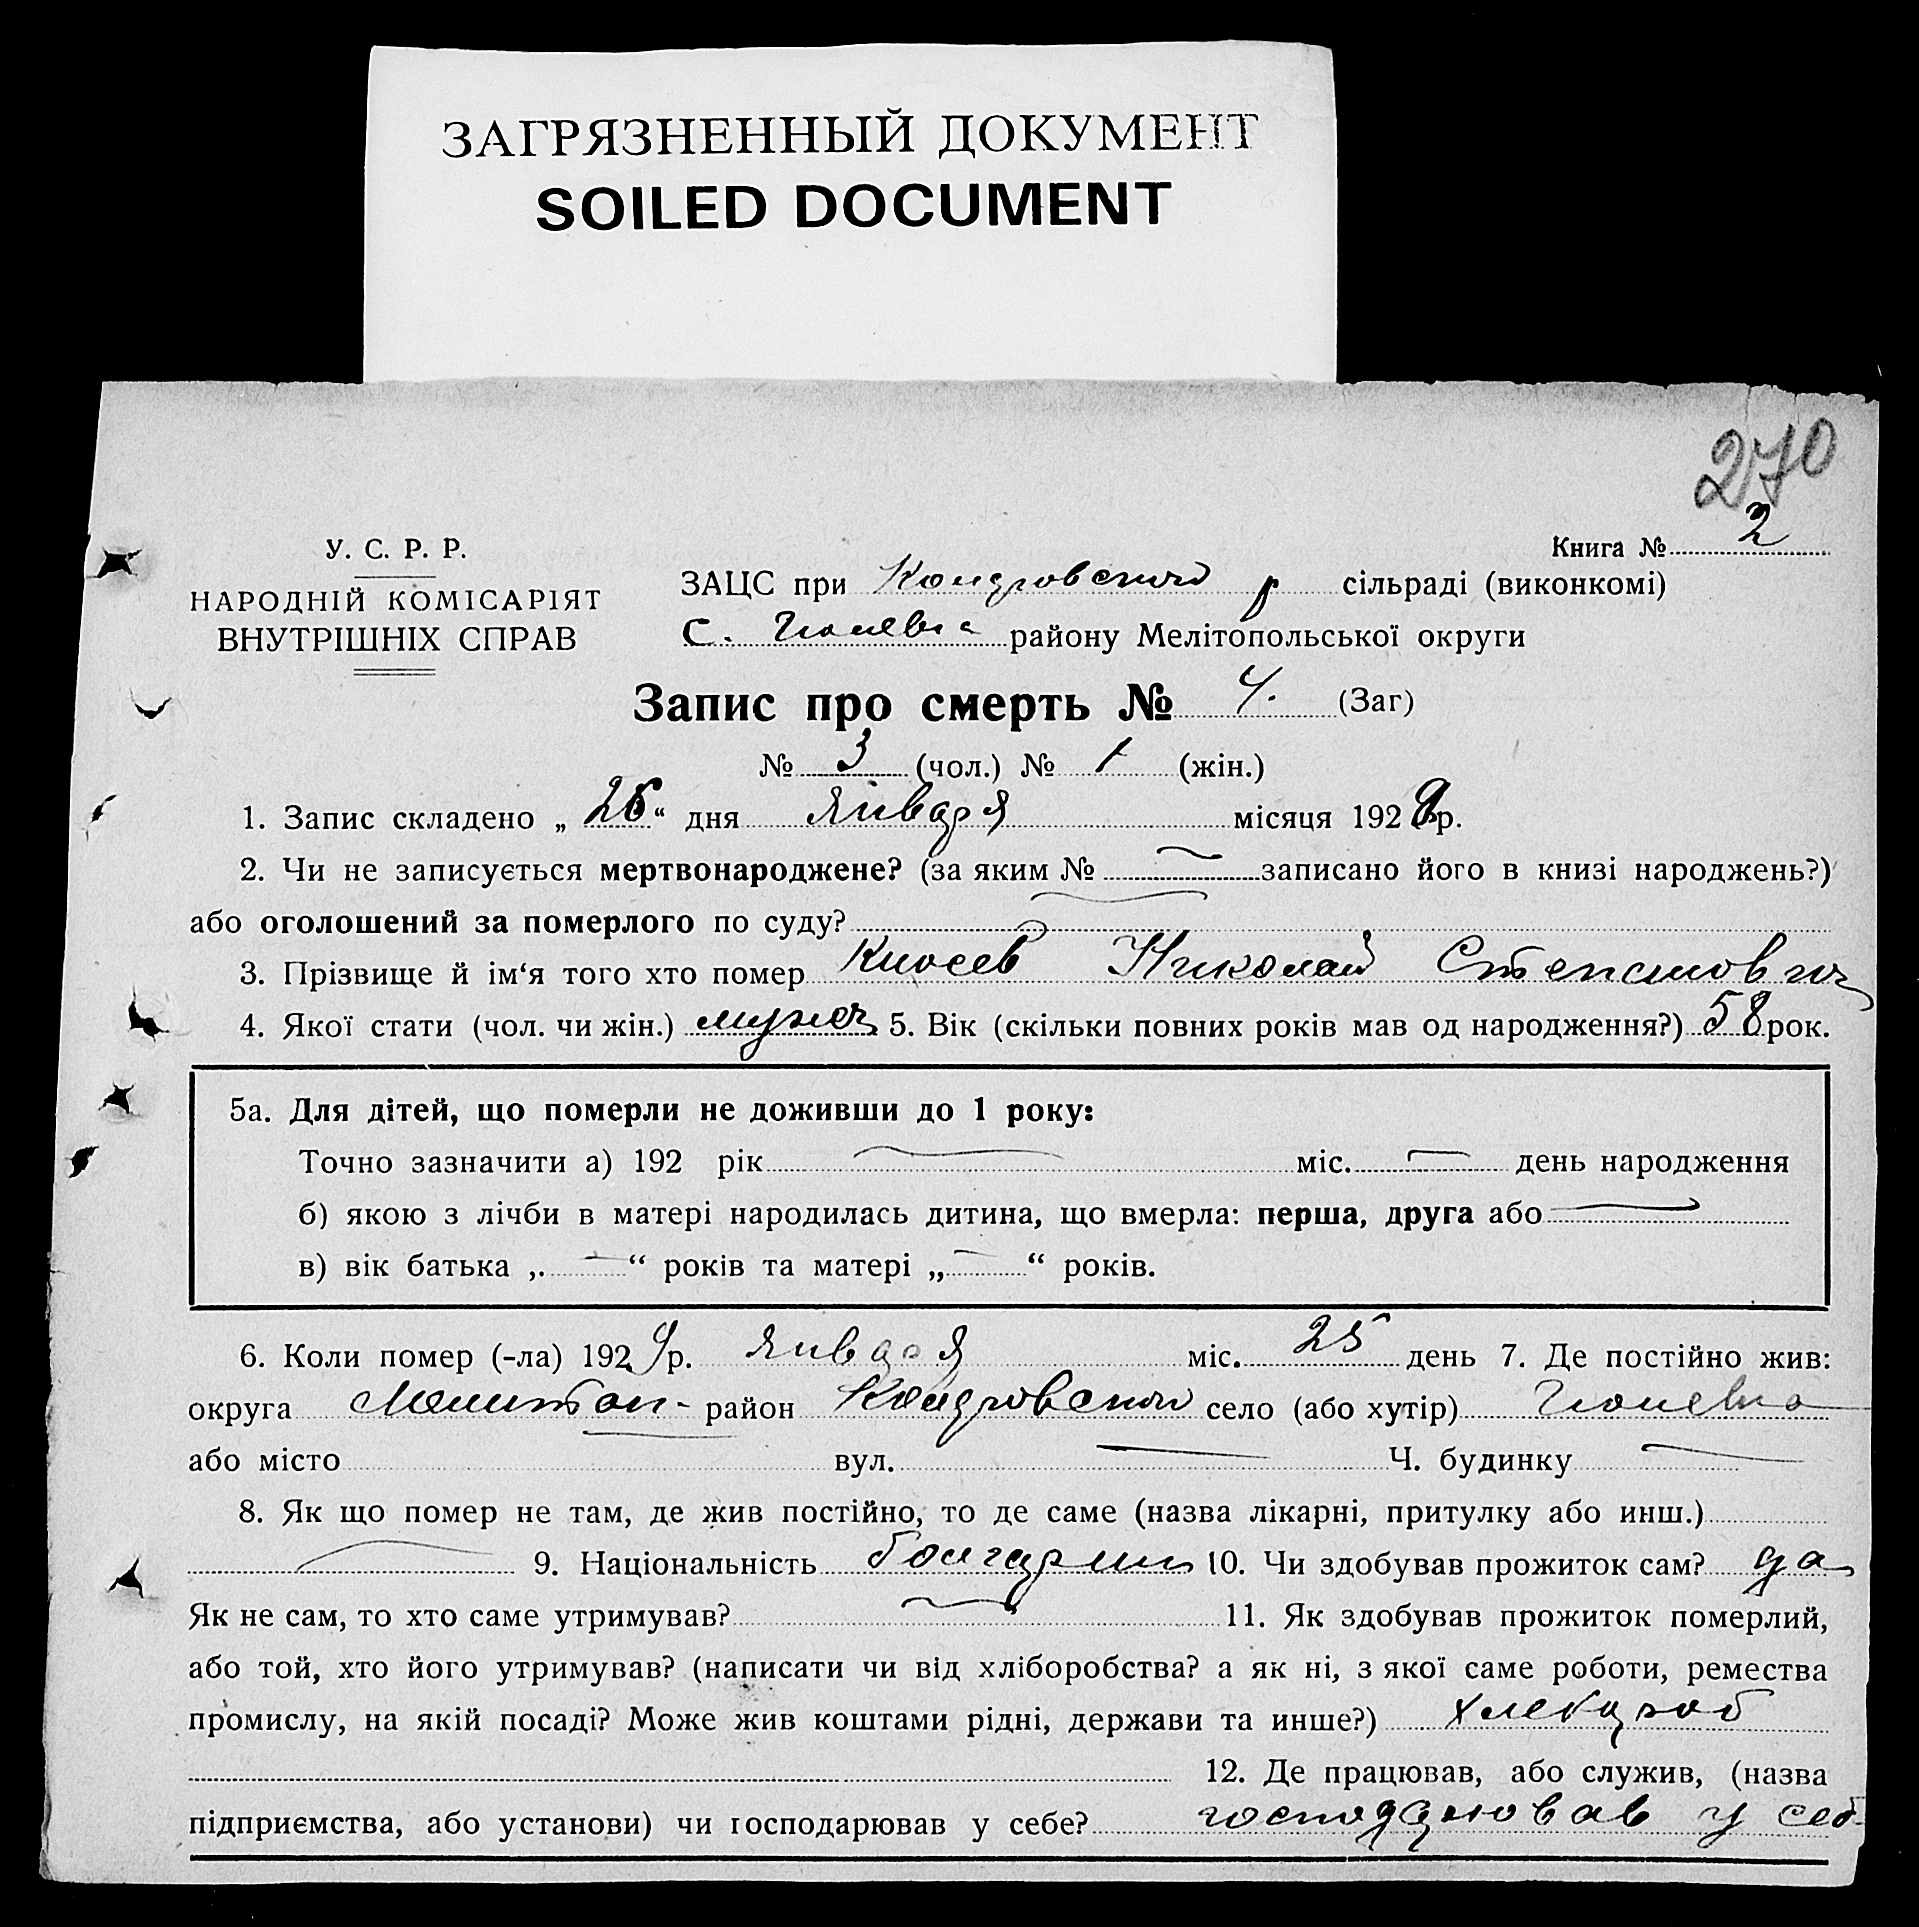 ЗАГРЯЗНЕННЫЙ ДОКУМЕНТ
SOILED DOCUMENT
270
У. С. Р. Р.
НАРОДНІЙ КОМІСАРІЯТ
ВНУТРІШНІХ СПРАВ
Книга № 2
ЗАЦС при сільраді (виконкомі)
С. району Мелітопольської округи
Запис про смерть № 4. (Заг)
№ 3 (чол.) № 1 (жін.)
1. Запис складено „ 26 “ дня Января місяця 1929 р.
2. Чи не записується мертвонароджене? (за яким № записано його в книзі народжень?)
або оголошений за померлого по суду?
3. Прізвище й ім‘я того хто помер Киосев Николай Степанович
4. Якої стати (чол. чи жін.) мужеч 5. Вік (скільки повних років мав од народження?) 58 рок.
5а. Для дітей, що померли не доживши до 1 року:
Точно зазначити а) 192 рік міс. день народження
б) якою з лічби в матері народилась дитина, що вмерла: перша, друга або
в) вік батька „ “ років та матері „ “ років.
6. Коли помер (-ла) 1929 р. Января міс. 25 день 7. Де постійно жив:
округа Мелитоп- район село (або хутір)
або місто вул. Ч. будинку
8. Як що помер не там, де жив постійно, то де саме (назва лікарні, притулку або инш.)
9. Національність болгарин 10. Чи здобував прожиток сам? да
Як не сам, то хто саме утримував? 11. Як здобував прожиток померлий,
або той, хто його утримував? (написати чи від хліборобства? а як ні, з якої саме роботи, ремества
промислу, на якій посаді? Може жив коштами рідні, держави та инше?) хлебороб
12. Де працював, або служив, (назва
підприємства, або установи) чи господарював у себе? господарював у себ